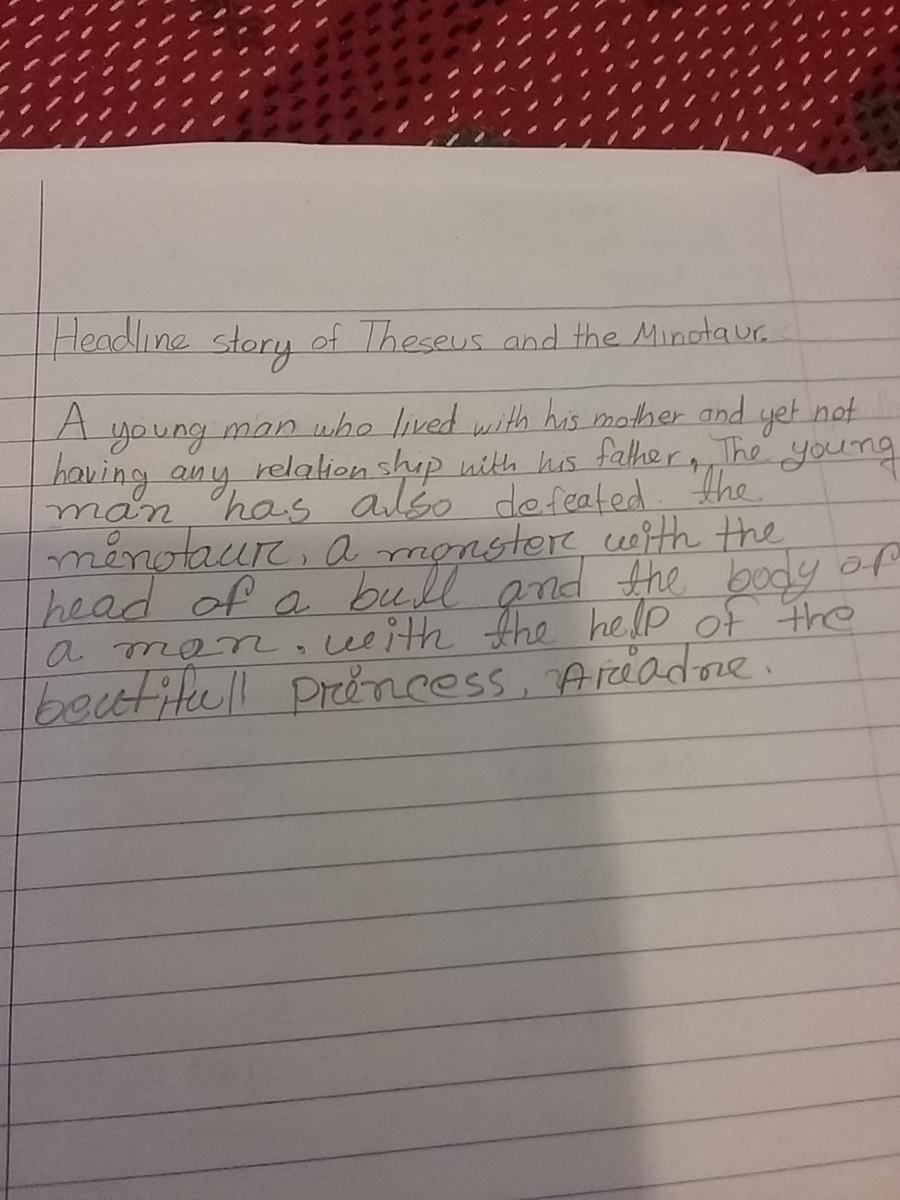 Headline story of Theseus and the Minotaur.
A young man who lived with his mother and yet not
having any relationship with his father, The young
man has also defeated the
minotaur, a monster with the
head of a bull and the body of
a man. with the help of the
beutifull princess, Ariadne.